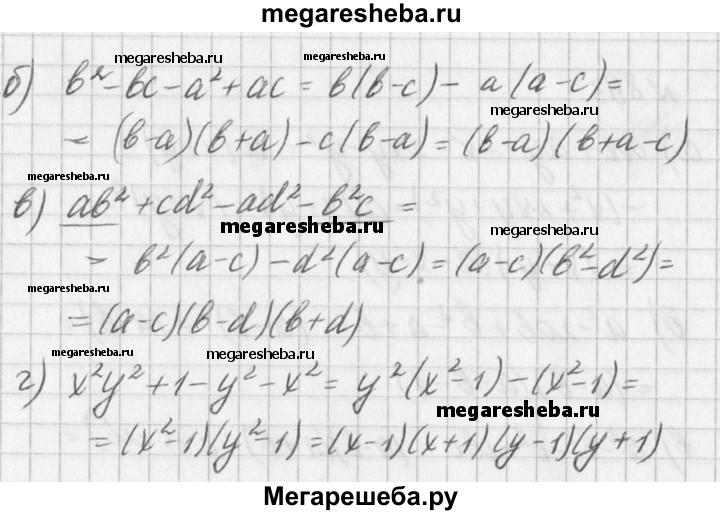 megaresheba.ru
megaresheba.ru megaresheba.ru
б) b² - bc - a² + ac = b(b-c) - a(a-c) =
megaresheba.ru
= (b-a)(b+a) - c(b-a) = (b-a)(b+a-c)
megaresheba.ru
в) ab² + cd² - ad² - b²c =
megaresheba.ru megaresheba.ru
= b²(a-c) - d²(a-c) = (a-c)(b²-d²) =
megaresheba.ru
= (a-c)(b-d)(b+d)
megaresheba.ru megaresheba.ru
г) x²y² + 1 - y² - x² = y²(x²-1) - (x²-1) =
megaresheba.ru
= (x²-1)(y²-1) = (x-1)(x+1)(y-1)(y+1)
Мегарешеба.ру